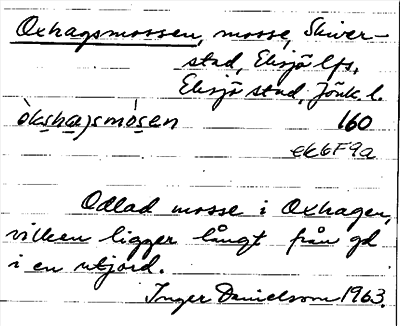 Oxhagsmossen, mosse, Skiver-
stad, Eksjö lfs,
Eksjö stad, Jönk. l.
òkshagsmósen 160
ek 6F9a
Odlad mosse i Oxhagen,
vilken ligger långt från gd
i en utjord.
Inger Danielsson 1963.